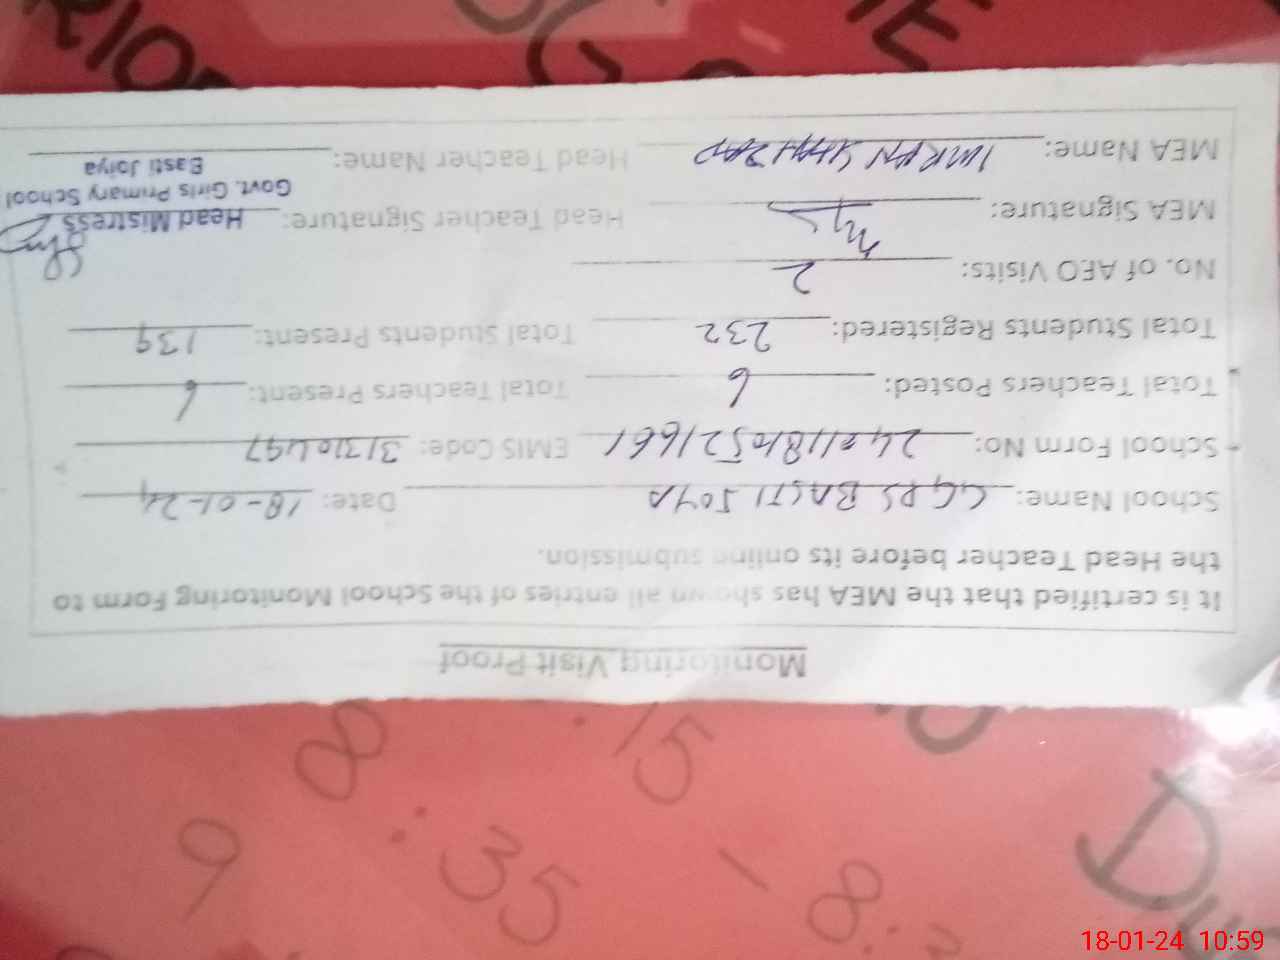 Monitoring Visit Proof
It is certified that the MEA has shown all entries of the School Monitoring Form to
the Head Teacher before its online submission.
School Name: GGPS BASTI JOYA Date: 18-01-24
School Form No: EMIS Code: 31310497
Total Teachers Posted: 6 Total Teachers Present: 6
Total Students Registered: 232 Total Students Present: 139
No. of AEO Visits: 2
MEA Signature: Head Teacher Signature: Head Mistress
Govt. Girls Primary School
MEA Name: IMRAN SHAHZAD Head Teacher Name: Basti Joiya
8:35
9
18-01-24 10:59